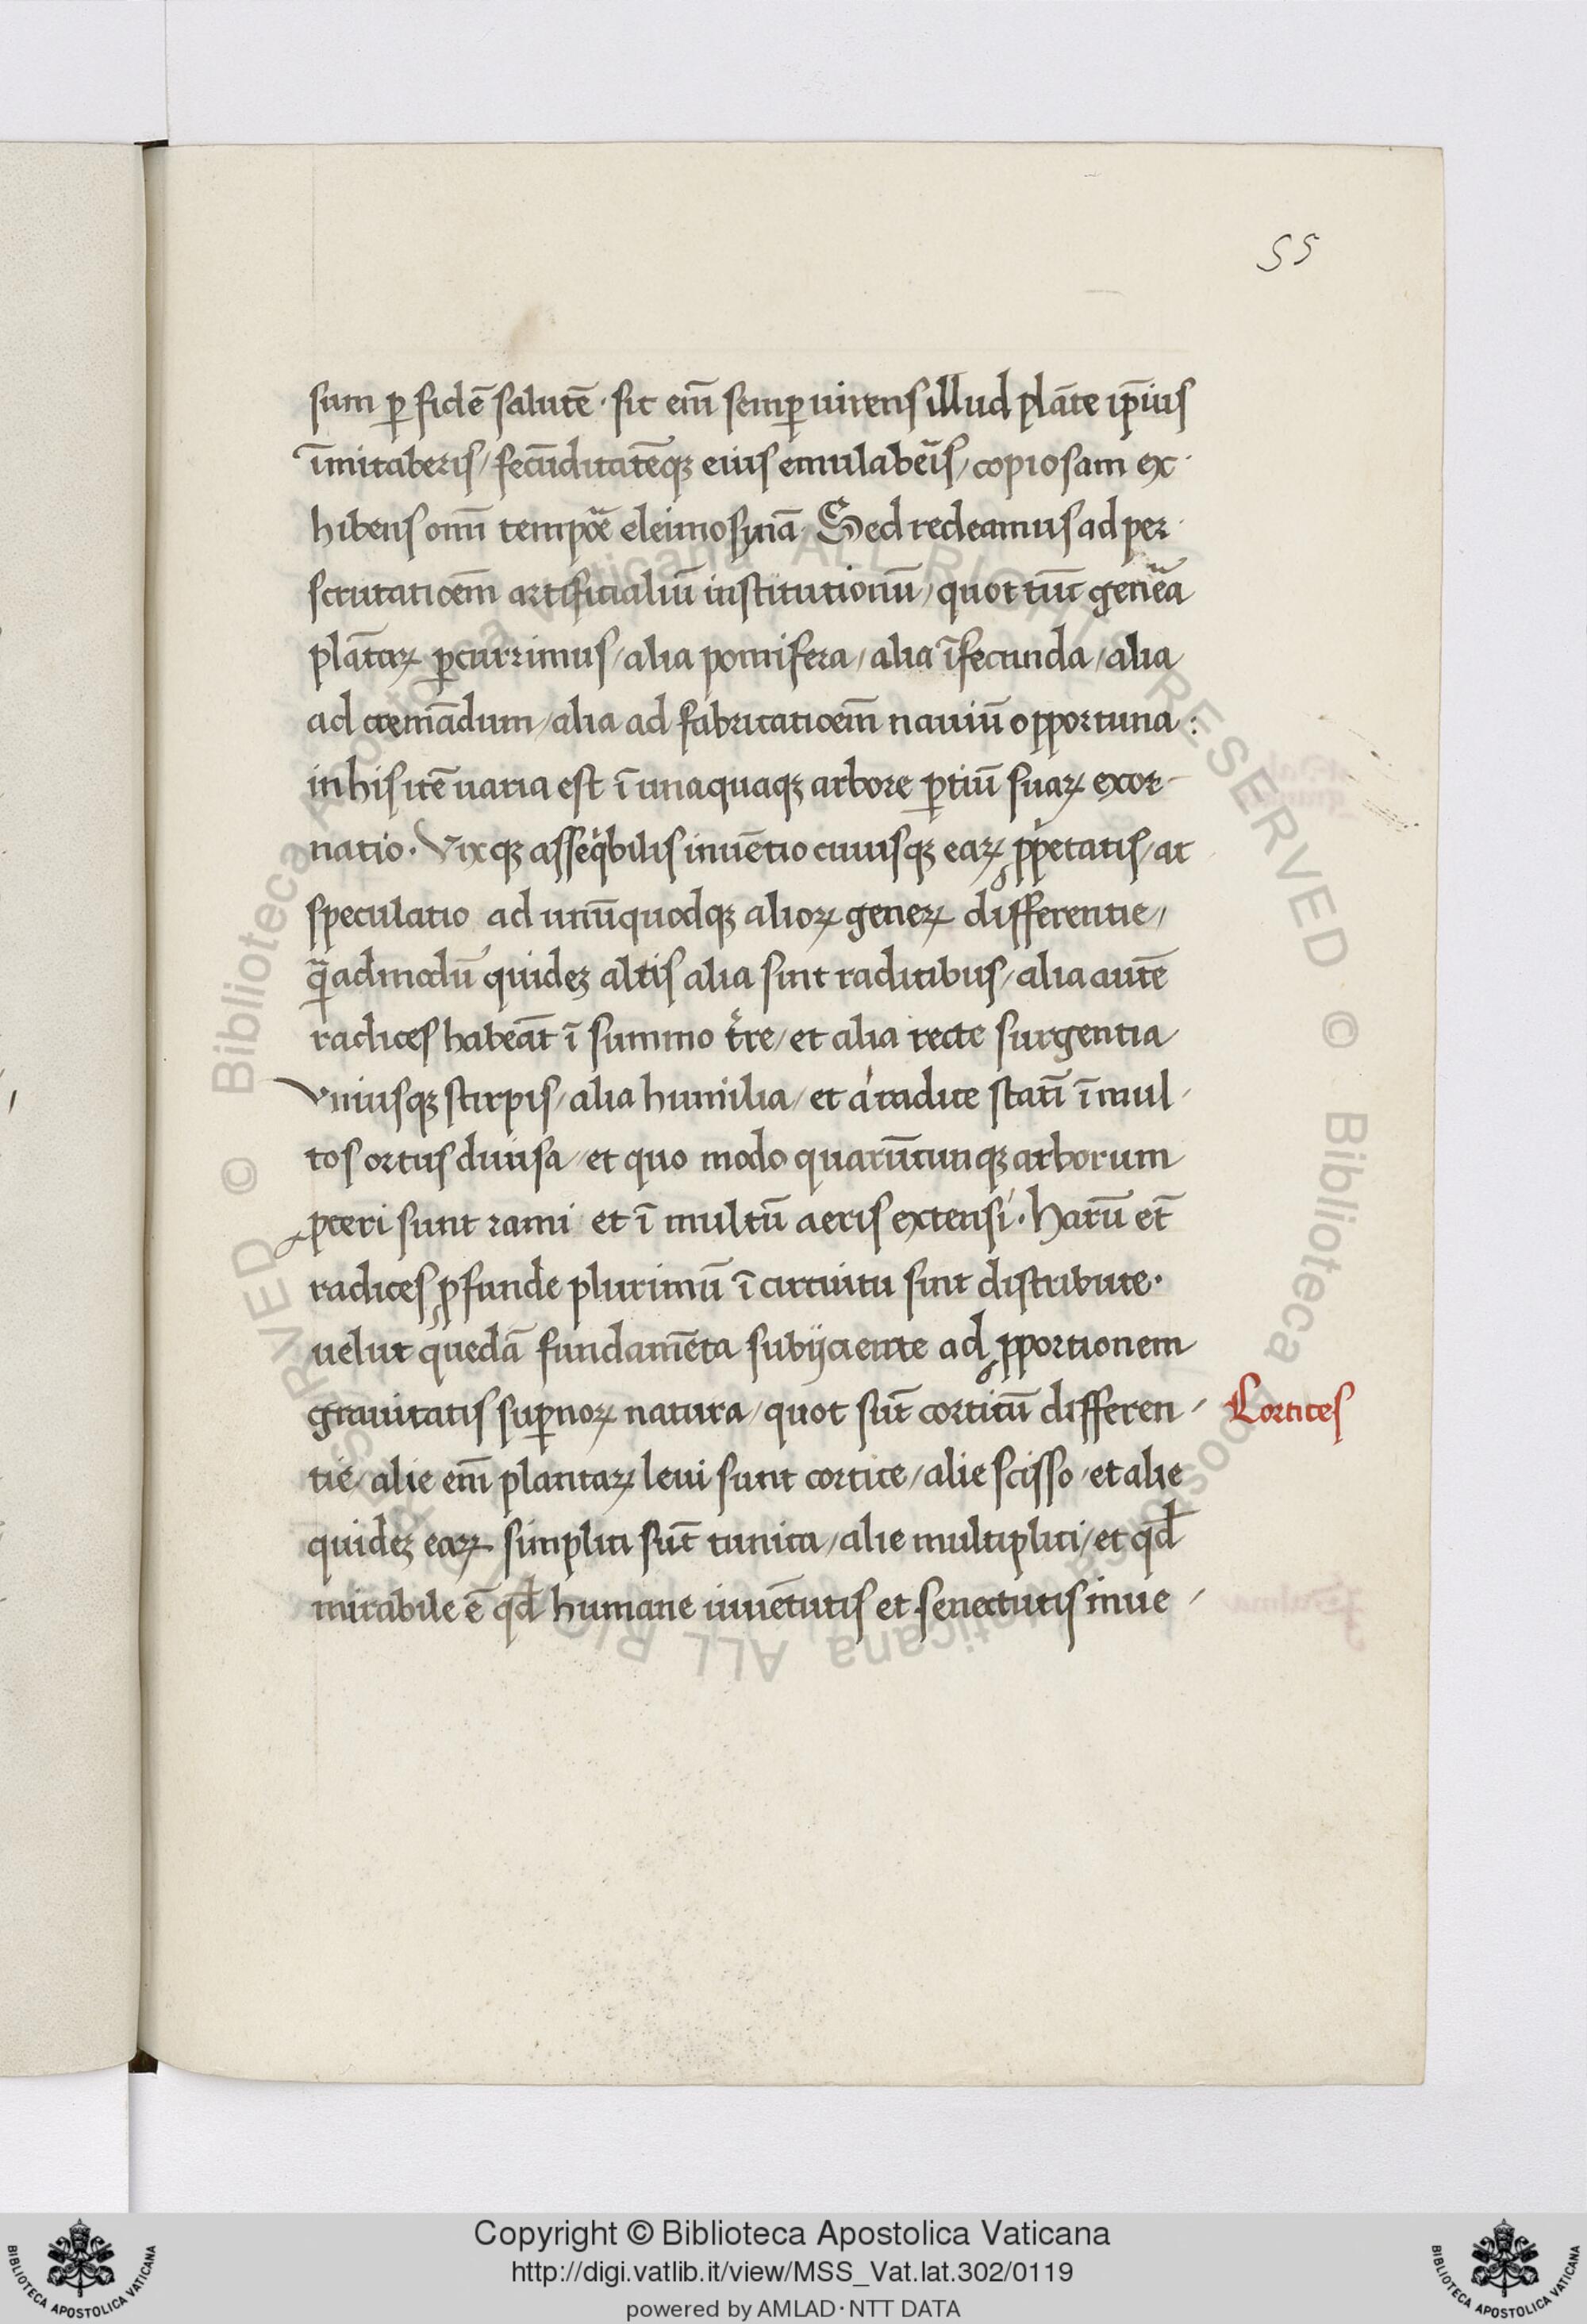 55
sum ꝑ fidē salutē · sic em̄ semꝑ uirens illud plāte ip̄ius
īmitaberis / fecūditatēqꝫ eius emulabeīs / copiosam ex
hibens om̄i tempoē eleimosynā · Sed redeamus ad per
scrutatioem̄ artificialiū institutionū / quot tūc genēa
plātaꝝ ꝑcurrimus / alia pomifera / alia īfecunda / alia
ad cremādum / alia ad fabricatioem̄ nauiū opportuna :
in his itē uaria est ī unaquaqꝫ arbore ꝑtiū suaꝝ exor-
natio · Vixqꝫ asseqͥbilis inuētio cuiusqꝫ eaꝝ ꝓpͥetatis / at
speculatio ad unūquodqꝫ alioꝝ geneꝝ differentie /
q̄admodū quideꝫ altis alia sint radicibus / alia autē
radices habeāt ī summo t̄re / et alia recte surgentia
vniusqꝫ stirpis / alia humilia / et a radice statī ī mul
tos ortus diuisa / et quo modo quarūcunqꝫ arborum
ꝓceri sunt rami et ī multū aeris extensi · Harū et̄
radices ꝓfunde plurimū ī circuitu sint distribute ·
uelut quedā fundamēta subijciente ad ꝓportionem
grauitatis suꝑnoꝝ natura / quot sūt corticū differen /
tie / alie em̄ plantaꝝ leui sunt cortice / alie scisso / et alie
quideꝫ eaꝝ simplici sūt tunica / alie multiplici / et qd̄
mirabile ē qd̄ humane iuuētutis et senectutis inue /
Cortices
Copyright © Biblioteca Apostolica Vaticana
http://digi.vatlib.it/view/MSS_Vat.lat.302/0119
powered by AMLAD · NTT DATA
BIBLIOTECA APOSTOLICA VATICANA
BIBLIOTECA APOSTOLICA VATICANA